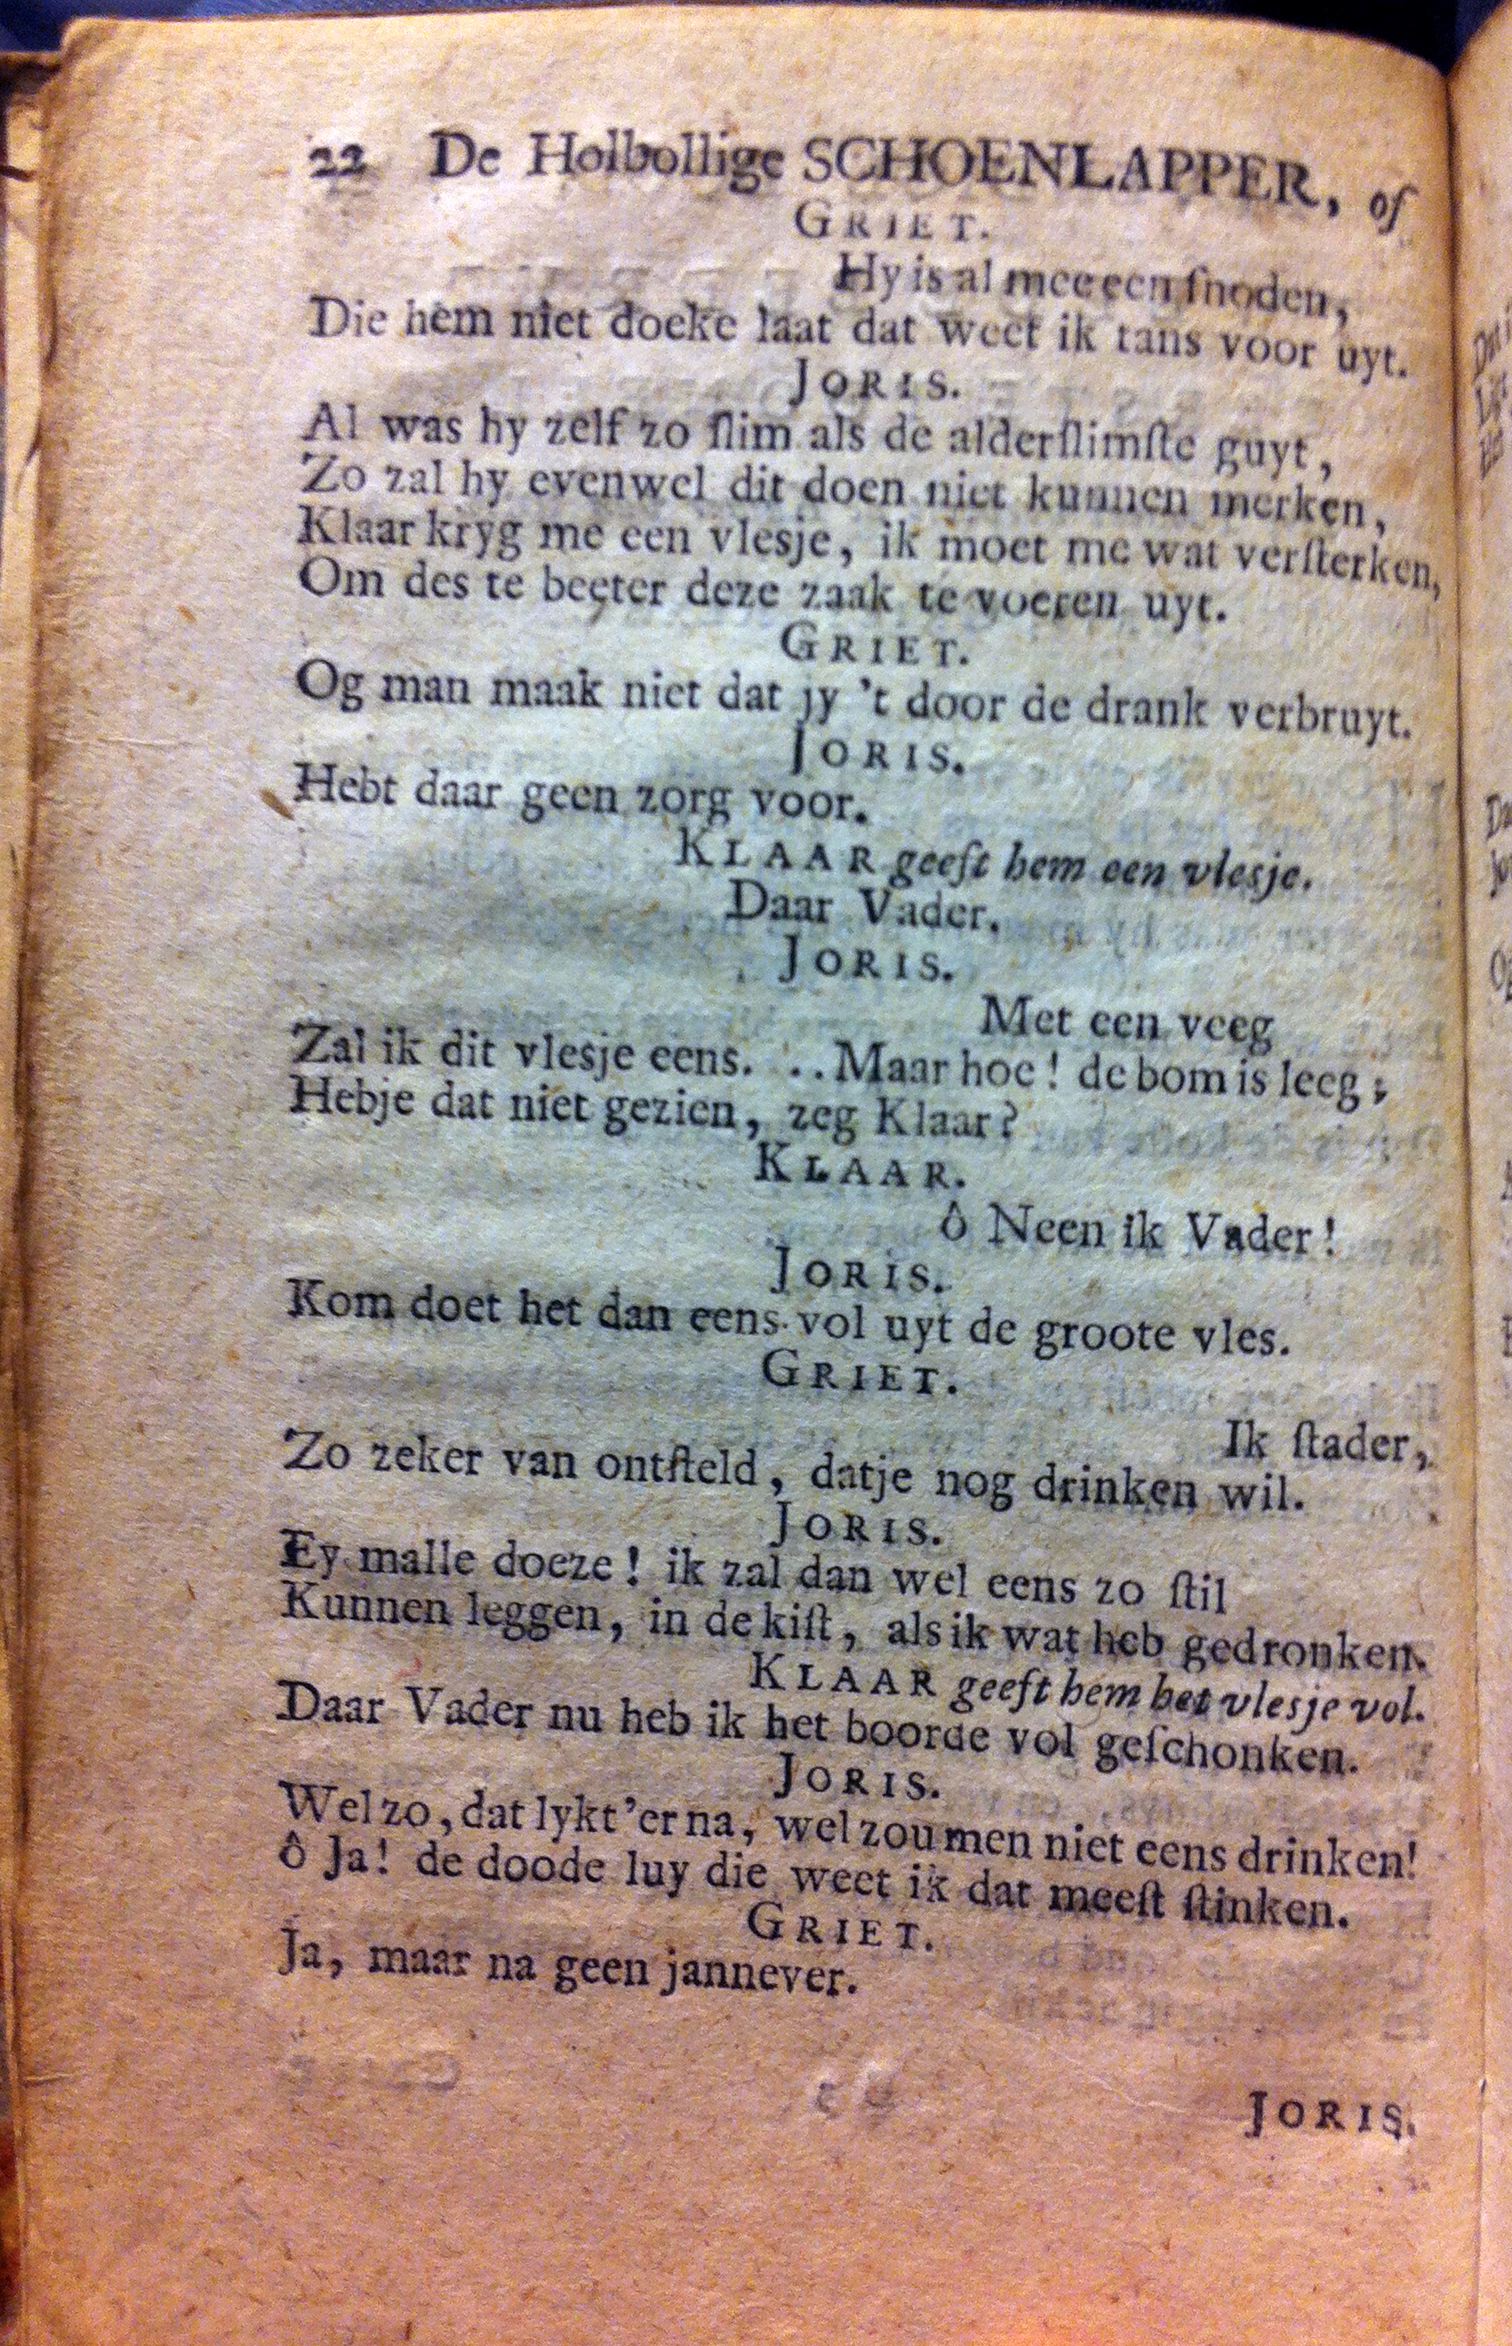 22 De Holbollige SCHOENLAPPER, of
GRIET.
Hy is al mee een ſnoden,
Die hem niet doeke laat dat weet ik tans voor uyt.
JORIS.
Al was hy zelf zo ſlim als de alderſlimſte guyt,
Zo zal hy evenwel dit doen niet kunnen merken,
Klaar kryg me een vlesje, ik moet me wat verſterken,
Om des te beeter deze zaak te voeren uyt.
GRIET.
Og man maak niet dat jy 't door de drank verbruyt.
JORIS.
Hebt daar geen zorg voor.
KLAAR geeft hem een vlesje.
Daar Vader.
JORIS.
Met een veeg
Zal ik dit vlesje eens. . . Maar hoe! de bom is leeg;
Hebje dat niet gezien, zeg Klaar?
KLAAR.
ô Neen ik Vader!
JORIS.
Kom doet het dan eens vol uyt de groote vles.
GRIET.
Ik ſtader,
Zo zeker van ontſteld, datje nog drinken wil.
JORIS.
Ey malle doeze! ik zal dan wel eens zo ſtil
Kunnen leggen, in de kiſt, als ik wat heb gedronken.
KLAAR geeft hem het vlesje vol.
Daar Vader nu heb ik het boorde vol geſchonken.
JORIS.
Wel zo, dat lykt 'er na, wel zou men niet eens drinken!
ô Ja! de doode luy die weet ik dat meeſt ſtinken.
GRIET.
Ja, maar na geen jannever.
JORIS.